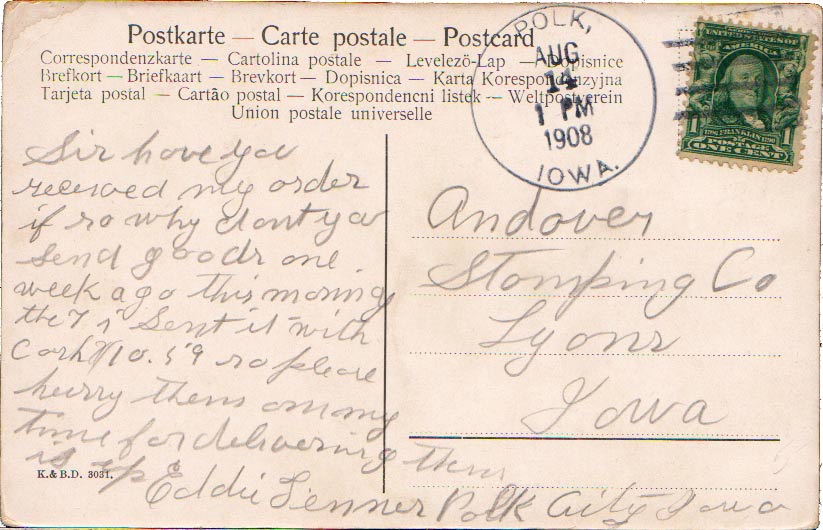 Postkarte — Carte postale — Postcard
Correspondenzkarte — Cartolina postale — Levelezö-Lap — Dopisnice
Brefkort — Briefkaart — Brevkort — Dopisnica — Karta Korespondenzyjna
Tarjeta postal — Cartão postal — Korespondencni listek — Weltpostverein
Union postale universelle
POLK,
AUG
14
1 PM
1908
IOWA.
UNITED STATES OF
AMERICA
1790 FRANKLIN 1790
1 POSTAGE 1
ONE CENT
Sir have you
received my order
if so why dont you
send goods one
week ago this morning
the 7 i sent it with
Cash $10.59 so please
hurry them on my
time for delivering them
is up
Eddie Lenner Polk City Iowa
Andover
Stomping Co
Lyons
Iowa
K. & B. D. 3031.